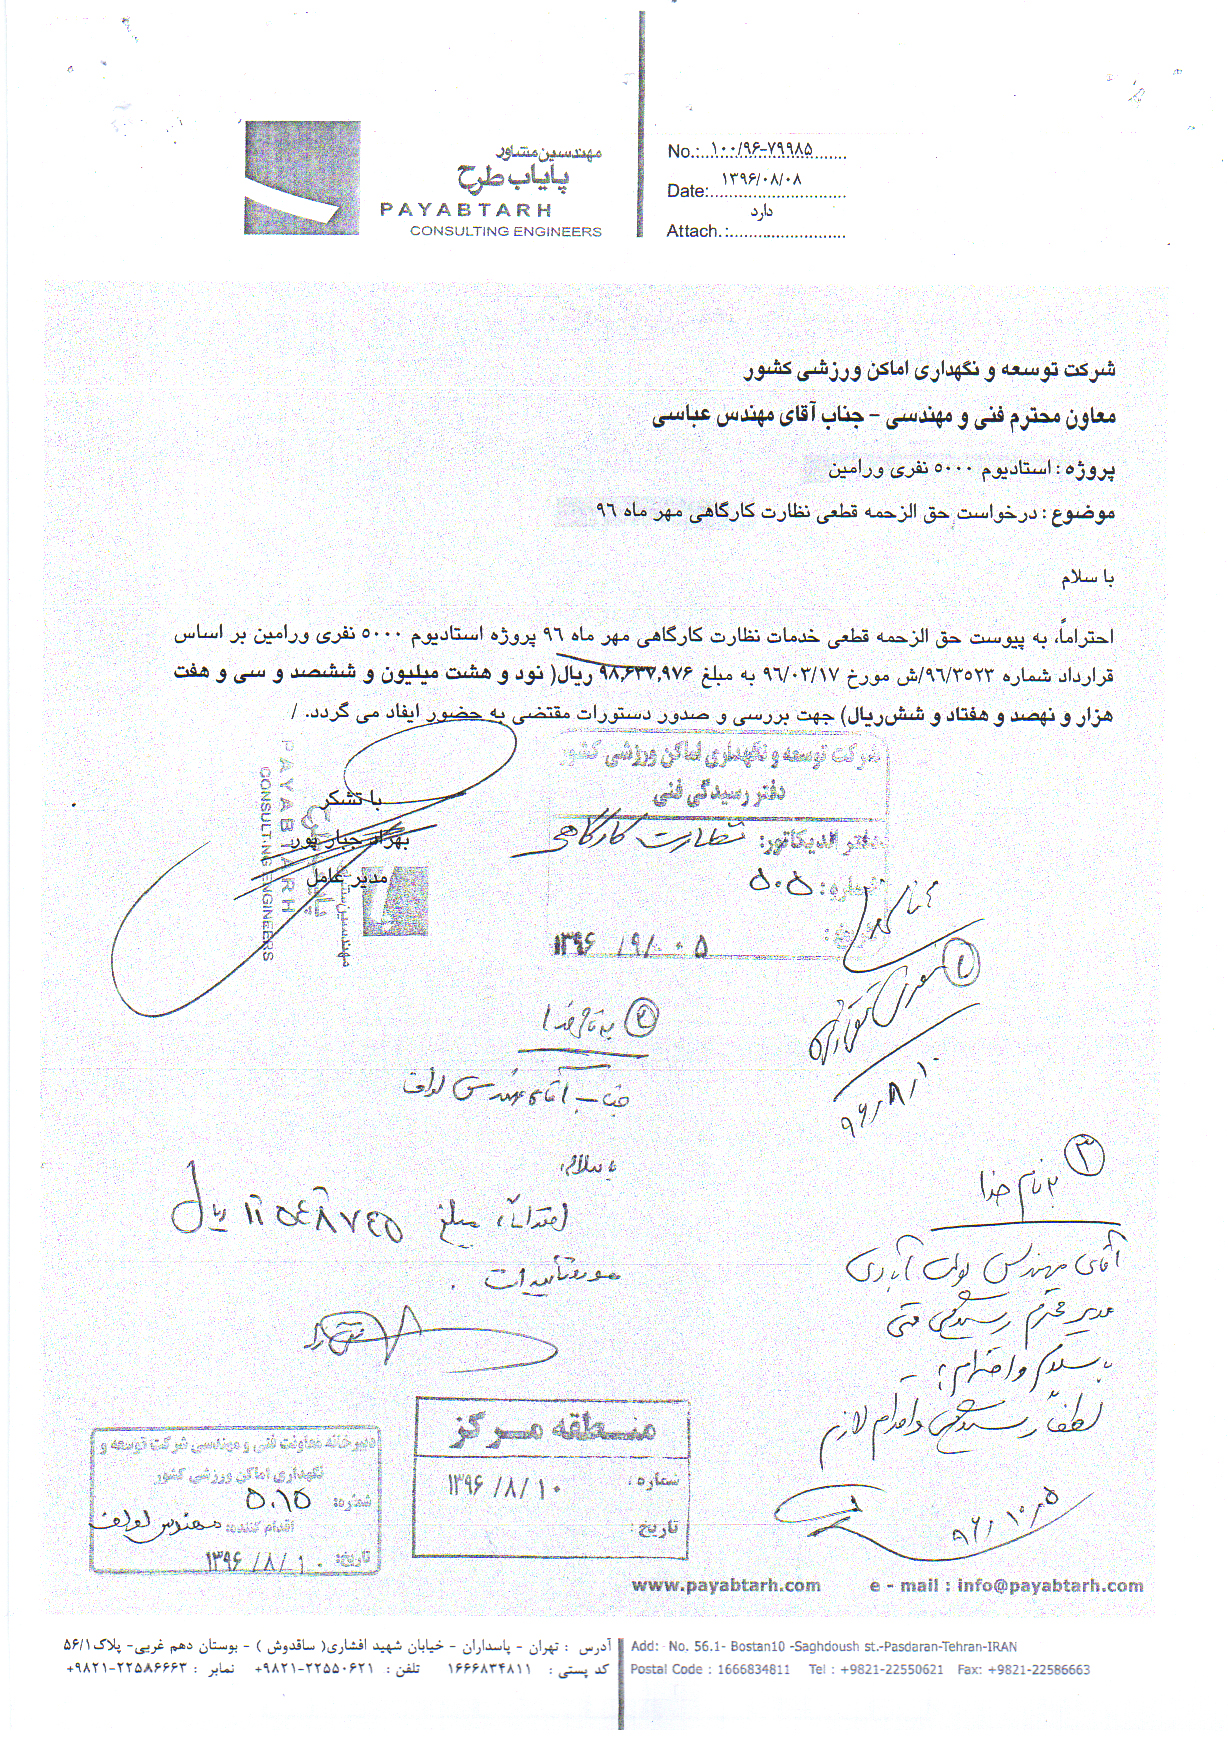 مهندسین مشاور
پایاب طرح
PAYABTARH
CONSULTING ENGINEERS
No.: ۱۰۰/۹۶-۷۹۹۸۵
Date: ۱۳۹۶/۰۸/۰۸
Attach.: دارد
شرکت توسعه و نگهداری اماکن ورزشی کشور
معاون محترم فنی و مهندسی - جناب آقای مهندس عباسی
پروژه : استادیوم ۵۰۰۰ نفری ورامین
موضوع : درخواست حق الزحمه قطعی نظارت کارگاهی مهر ماه ۹۶
با سلام
احتراماً، به پیوست حق الزحمه قطعی خدمات نظارت کارگاهی مهر ماه ۹۶ پروژه استادیوم ۵۰۰۰ نفری ورامین بر اساس
قرارداد شماره ۹۶/۳۵۲۳/ش مورخ ۹۶/۰۳/۱۷ به مبلغ ۹۸,۶۳۷,۹۷۶ ریال( نود و هشت میلیون و ششصد و سی و هفت
هزار و نهصد و هفتاد و شش‌ریال) جهت بررسی و صدور دستورات مقتضی به حضور ایفاد می گردد. /
با تشکر
بهزاد جبار پور
مدیر عامل
PAYABTARH
CONSULTING ENGINEERS
مهندسین مشاور
شرکت توسعه و نگهداری اماکن ورزشی کشور
دفتر رسیدگی فنی
دفتر اندیکاتور: نظارت کارگاهی
شماره: ۵۰۵
۱۳۹۶/۹/۰۵
۱
۹۶/۸/۱۰
۲ به نام خدا
جناب آقای مهندس
با سلام،
احتراماً، مبلغ ریال
مورد تأیید است.
۳
به نام خدا
آقای مهندس دولت آبادی
مدیر محترم رسیدگی فنی
با سلام و احترام؛
لطفاً رسیدگی و اقدام لازم
۹۶/۱۰/۰۵
منطقه مرکز
شماره:
۱۳۹۶/۸/۱۰
تاریخ:
دبیرخانه معاونت فنی و مهندسی شرکت توسعه و
نگهداری اماکن ورزشی کشور
شماره: ۵۰۱۵
اقدام کننده: مهندس
تاریخ: ۱۳۹۶/۸/۱۰
www.payabtarh.com e - mail : info@payabtarh.com
آدرس : تهران - پاسداران - خیابان شهید افشاری( ساقدوش ) - بوستان دهم غربی- پلاک۵۶/۱
کد پستی : ۱۶۶۶۸۳۴۸۱۱ تلفن : ۲۲۵۵۰۶۲۱-۹۸۲۱+ نمابر : ۲۲۵۸۶۶۶۳-۹۸۲۱+
Add: No. 56.1- Bostan10 -Saghdoush st.-Pasdaran-Tehran-IRAN
Postal Code : 1666834811 Tel : +9821-22550621 Fax: +9821-22586663